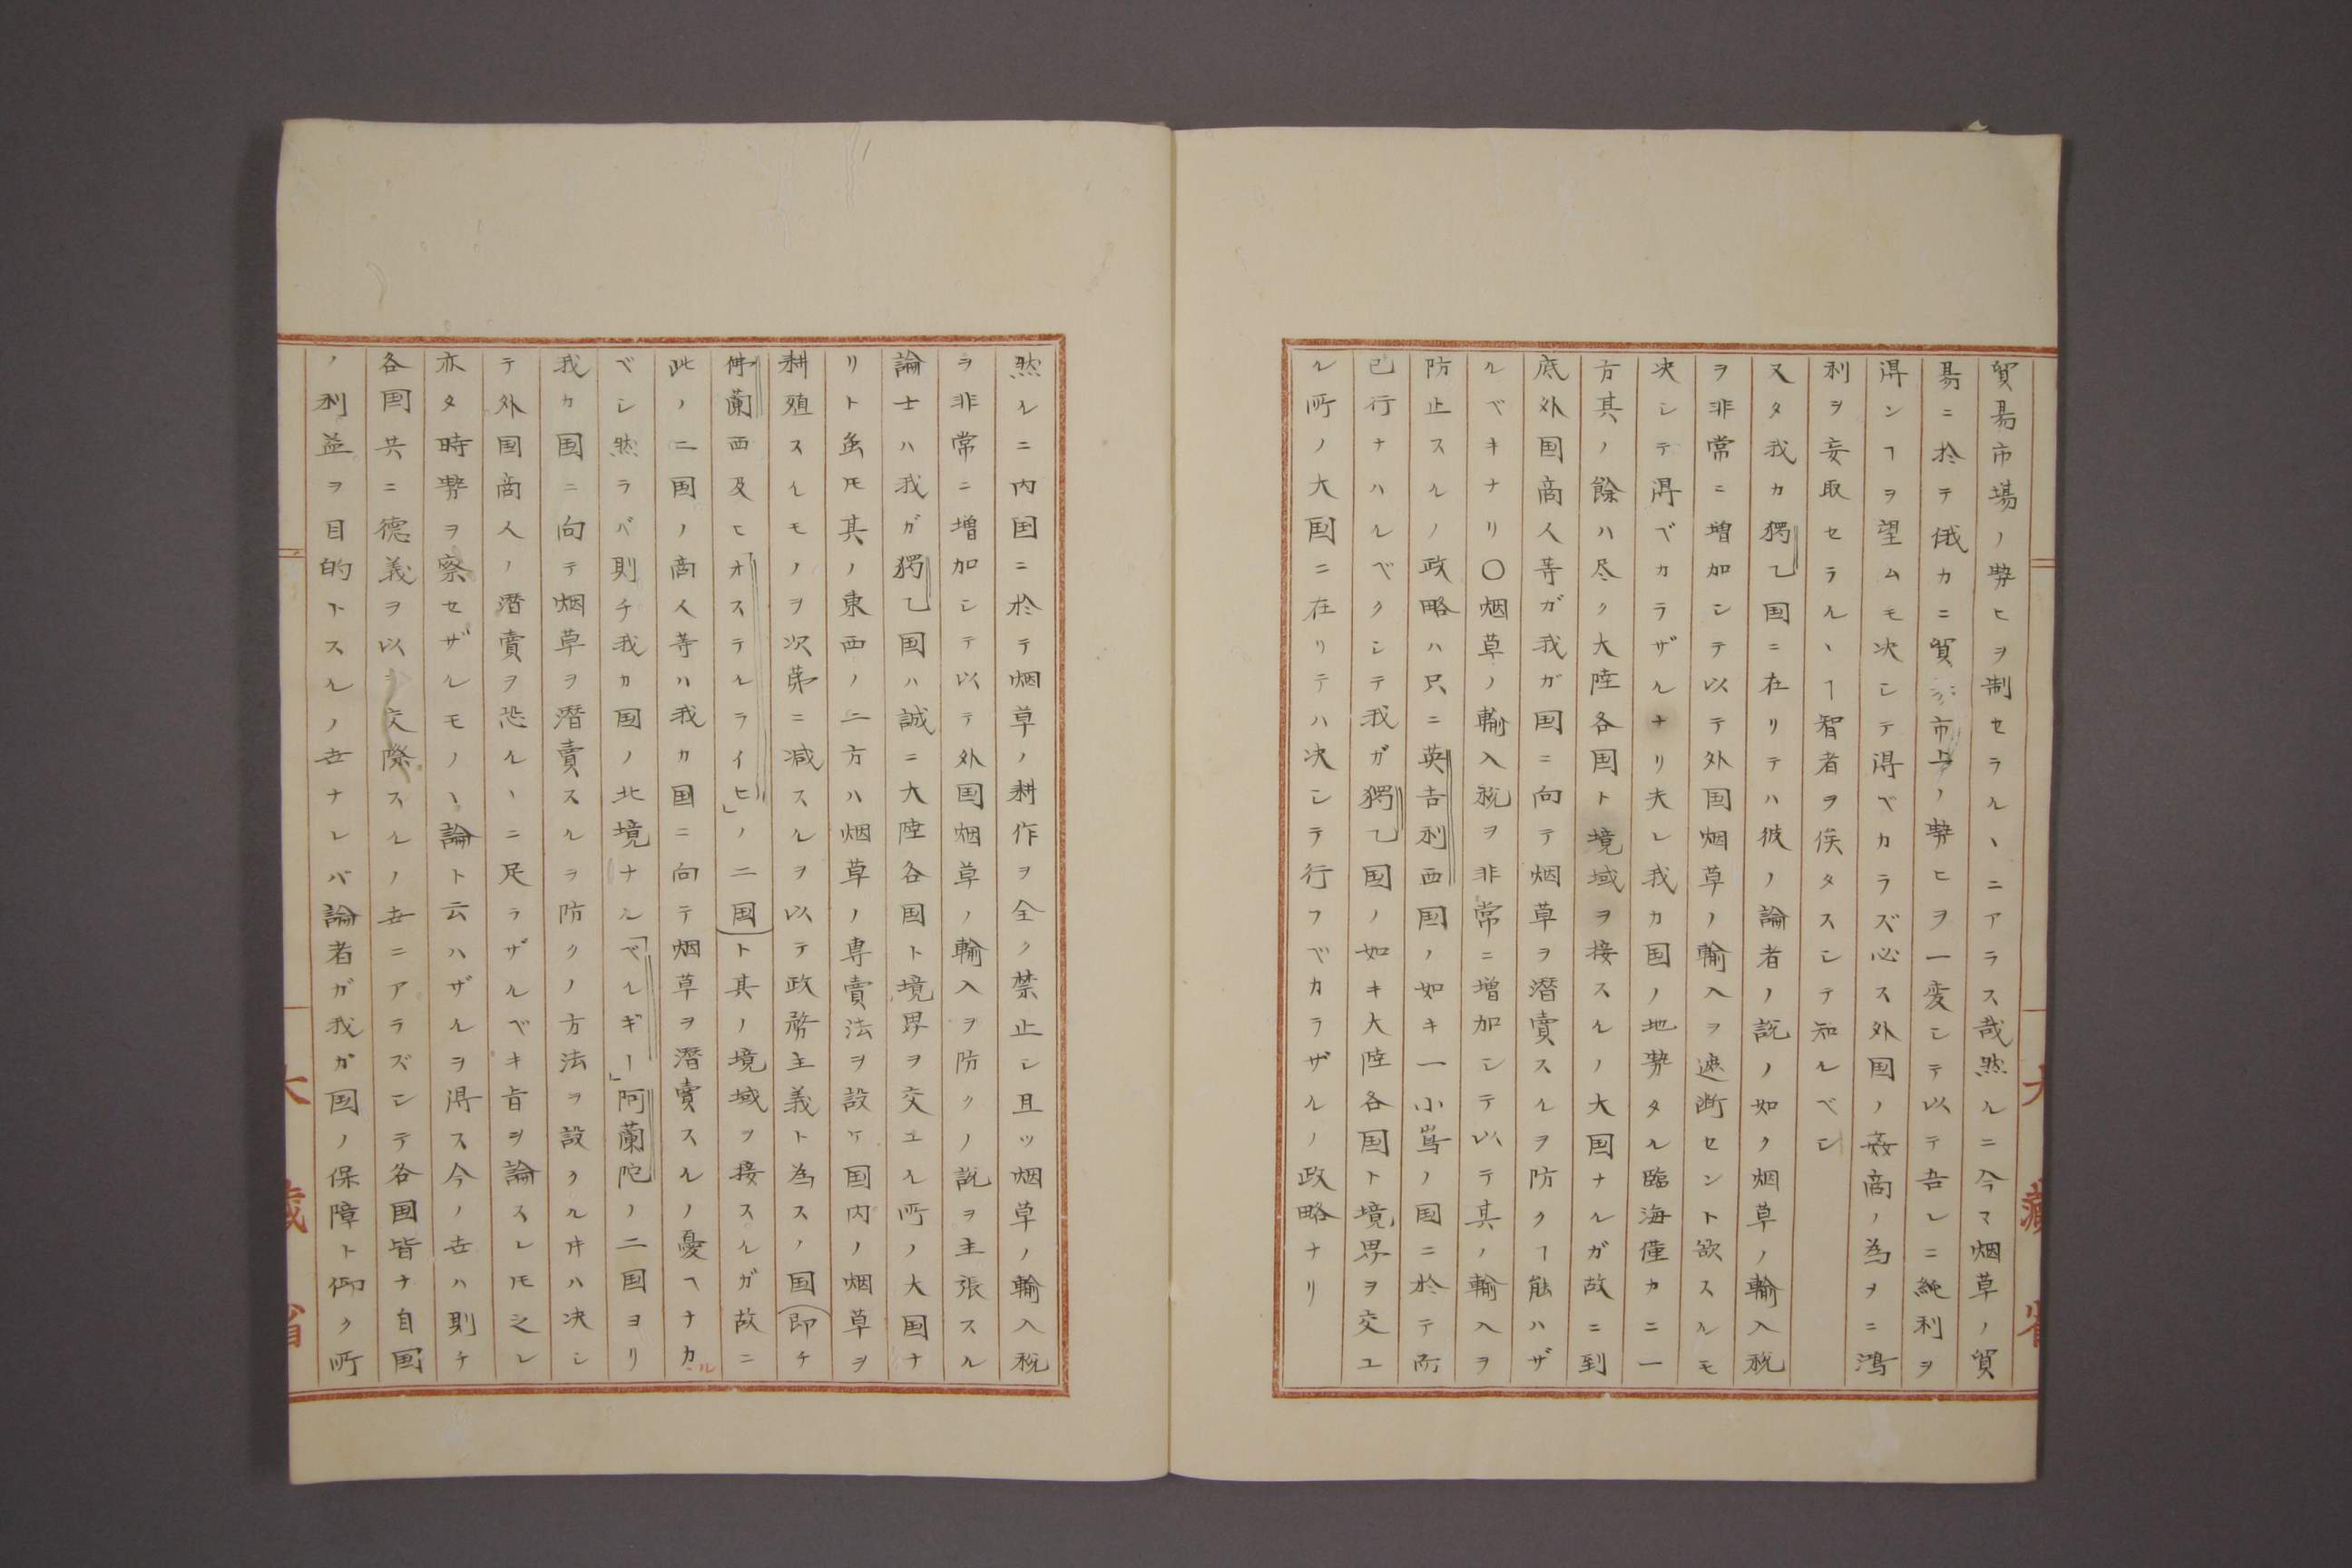 貿易市場ノ勢ヒヲ制セラルヽニアラス哉然ルニ今マ烟草ノ貿
易ニ於テ俄カニ貿易市上ノ勢ヒヲ一変シテ以テ吾レニ純利ヲ
得ンヿヲ望ムモ决シテ得ベカラズ必ス外国ノ姦商ノ為ヲニ鴻
利ヲ妄取セラルヽヿ智者ヲ俟タスシテ知ルベシ
又タ我カ獨乙国ニ在リテハ彼ノ論者ノ説ノ如ク烟草ノ輸入税
ヲ非常ニ増加シテ以テ外国烟草ノ輸入ヲ遮断セント欲スルモ
决シテ得ベカラザルナリ夫レ我カ国ノ地勢タル臨海僅カニ一
方其ノ餘ハ尽ク大陸各国ト境域ヲ接スルノ大国ナルガ故ニ到
底外国商人等ガ我ガ国ニ向テ烟草ヲ潜賣スルヲ防クヿ能ハザ
ルベキナリ〇烟草ノ輸入税ヲ非常ニ増加シテ以テ其ノ輸入ヲ
防止スルノ政略ハ只ニ英吉利西国ノ如キ一小嶌ノ国ニ於テ而
已行ナハルベクシテ我ガ獨乙国ノ如キ大陸各国ト境界ヲ交ユ
ル所ノ大国ニ在リテハ决シテ行フベカラザルノ政略ナリ
大藏省
然ルニ内国ニ於テ烟草ノ耕作ヲ全ク禁止シ且ツ烟草ノ輸入税
ヲ非常ニ増加シテ以テ外国烟草ノ輸入ヲ防クノ説ヲ主張スル
論士ハ我ガ獨乙国ハ誠ニ大陸各国ト境界ヲ交ユル所ノ大国ナ
リト虽モ其ノ東西ノ二方ハ烟草ノ専賣法ヲ設ケ国内ノ烟草ヲ
耕殖スルモノヲ次第ニ减スルヲ以テ政務主義ト為スノ国(即チ
佛蘭西及ヒオステルライヒ」ノ二国)ト其ノ境域ヲ接スルガ故ニ
此ノ二国ノ商人等ハ我カ国ニ向テ烟草ヲ潜賣スルノ憂ヘナカル
ベシ然ラバ則チ我カ国ノ北境ナル「ベルギー」阿蘭陀ノ二国ヨリ
我カ国ニ向テ烟草ヲ潜賣スルヲ防クノ方法ヲ設クル𪜈ハ决シ
テ外国商人ノ潜賣ヲ恐ルヽニ足ラザルベキ旨ヲ論スレ𪜈之レ
亦タ時勢ヲ察セザルモノヽ論ト云ハザルヲ得ス今ノ世ハ則チ
各国共ニ徳義ヲ以テ交際スルノ世ニアラズシテ各国皆ナ自国
ノ利益ヲ目的トスルノ世ナレバ論者ガ我ガ国ノ保障ト仰ク所
大藏省